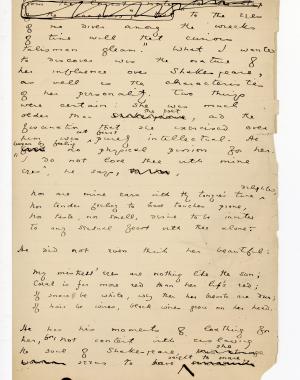 to the eyes
of no diver among the wrecks
of time will that curious
talisman gleam." What I wanted
to discover was the nature of
her influence over Shakespeare,
as well as the characteristics
of her personality. Two things
were certain: she was much
older than the poet, and the
fascination that she exercised over
him was at first purely intellectual. He
began by feeling no physical passion for her.
"I do not love thee with mine
eyes", he says,
Nor are mine ears with thy tongue's tune delighted;
Nor tender feeling to base touches prone,
Nor taste, no smell, desire to be invited
To any sensual feast with thee alone:
He did not even think her beautiful:
My mistress' eyes are nothing like the sun;
Coral is far more red than her lips' red;
If snow be white, why then her breasts are dun;
If hairs be wires, black wires grow on her head.
He has his moments of loathing for
her, for not content with enslaving
the soul of Shakespeare, she
seems to have sought to snare